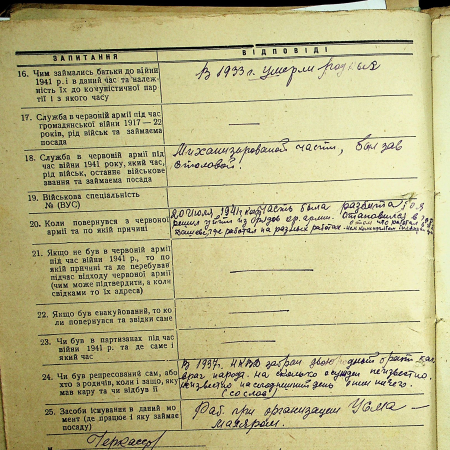 ЗАПИТАННЯ
ВІДПОВІДІ
16. Чим займались батьки до війни
1941 р. і в даний час та належ-
ність їх до комуністичної пар-
тії і з якого часу
В 1933 г. умерли родные
17. Служба в червоній армії під час
громадянської війни 1917—22
років, рід військ та займаєма
посада
—
18. Служба в червоній армії під
час війни 1941 року, який час,
рід військ, останнє військове
звання та займаєма посада
Механизированой части, был зав
столовой.
19. Військова спеціальність
№ (ВУС)
20. Коли повернувся з червоної
армії та по якій причині
20 июля 1941 г. часть была разбита
решил уйти из рядов кр. армии. Остановился в
где работал на разных работах
21. Якщо не був в червоній армії
під час війни 1941 р., то по
якій причині та де перебував
під час відходу червоної армії
(чим може підтвердити, а коли
свідками то їх адреса)
—
22. Якщо був евакуйований, то ко-
ли повернувся та звідки саме
—
23. Чи був в партизанах під час
війни 1941 р. та де саме і
який час
—
24. Чи був репресований сам, або
хто з родичів, коли і защо, яку
мав кару та чи відбув її
В 1937 г. НКВД забрал брат как
враг народа. на сколько осужден неизвестно.
Неизвестно на сегодняшний день о нем ничего.
(со слов)
25. Засоби існування в даний мо-
мент (де працює і яку займає
посаду)
Раб. при организации
маляром.
Черкассы